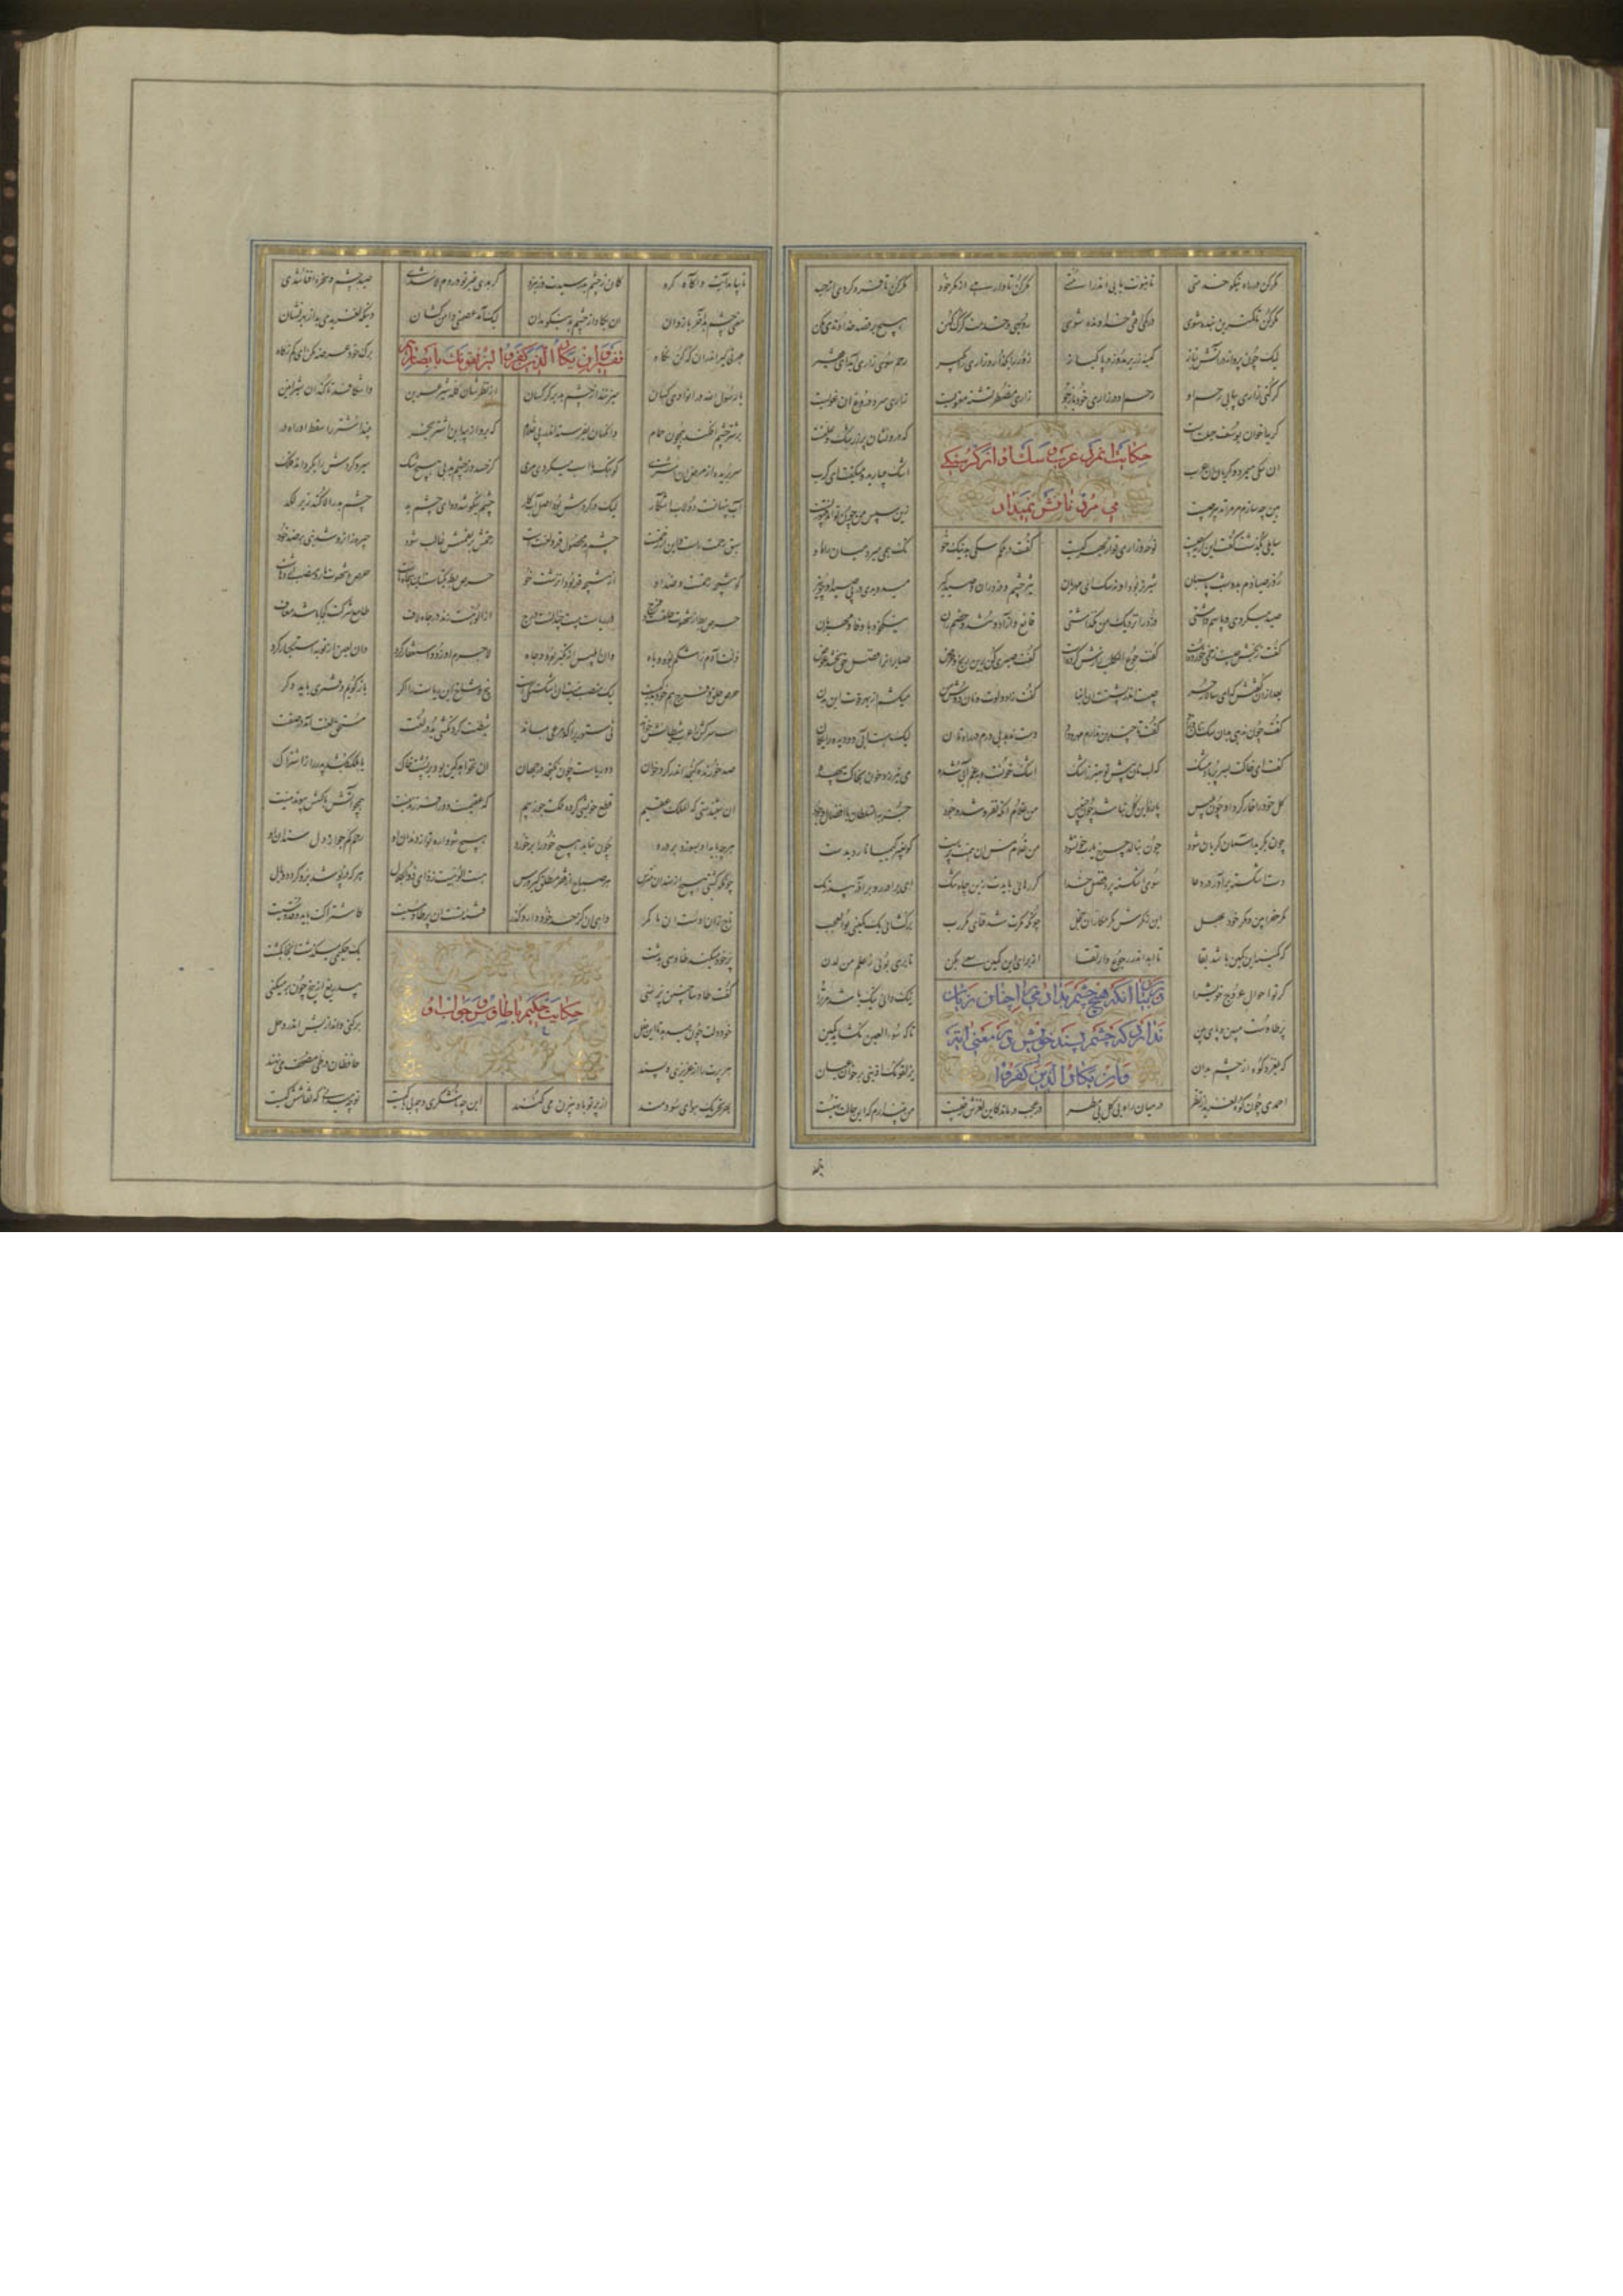 مکر کن در راه نیکو خدمتی تا نبوت یابی اندر امتی مکر کن تا وارهی از مکر خود مکر کن تا فرد گردی از جسد
مکر کن تا کمترین بنده شوی در کمی افتی خداونده شوی روبهی و خدمت گرگ کهن هیچ بر قصد خداوندی مکن
لیک چون پروانه در آتش بتاز کیسه زر بر مدوز و پاکباز زور را بگذار و زاری را بگیر رحم سوی زاری آید ای فقیر
گر کنی زاری بیابی رحم او رحم او در زاری خود بازجو زاری مضطر تشنه معنویست زاری سرد دروغ آن غویست
گریه اخوان یوسف حیلتست که درونشان پر ز رشک و علتست
حکایت آنمرد عرب که سگ او از گرسنگی
می مرد و نانش نمیداد
آن سگی میمرد و گریان آن عرب اشک میبارید و میگفت ای کرب
هین چه سازم مر مرا تدبیر چیست زین سپس من چون توانم بی تو زیست
سایلی بگذشت گفت این گریه چیست نوحه و زاری تو از بهر کیست گفت در ملکم سگی بد نیک خو نک همی میرد میان راه او
روز صیادم بد و شب پاسبان شیر نر بود او نه سگ ای تیز چشم و دزدران و صیدگیر میدویدی در پی صید او چو تیر
صید میکردی و پاسم داشتی دزد را نزدیک من نگذاشتی قانع و آزاد و تند و خصم ران نیکخو و با وفا و مهربان
گفت رنجش چیست زخمی خورده است گفت جوع الکلب زارش کرده است گفت صبری کن برین رنج و حرض صابران را فضل حق بخشد عوض
بعد از آن گفتش که ای سالار حر چیست اندر پشتت این انبان پر گفت زاد و لوت و نان دوش من میکشم از بهر قوت این بدن
گفت چون ندهی بدان سگ نان و زاد گفت تا این حد ندارم مهر و داد دست ناید بی درم در راه نان لیک هست آب دو دیده رایگان
گفت ای خاکت بسر پر باد مشک که لب نان پیش تو بهتر ز اشک اشک خونست و بغم آبی شده می نیرزد خون بخاک بیهده
کل خود را خوار کرد او چون بلیس پاره این کل نباشد جز خسیس من غلام آنکه نفروشد وجود جز بدان سلطان با افضال و جود
چون بگرید آسمان گریان شود چون بنالد چرخ یارب خوان شود من غلام مس آن همت پرست کو بغیر کیمیا نارد شکست
دست اشکسته برآور در دعا سوی اشکسته پرد فضل خدا گر رهایی بایدت زین چاه تنگ ای برادر رو بر آذر بی درنگ
مکر حق را بین و مکر خود بهل ای ز مکرش مکر مکاران خجل چونکه مکرت شد فنای مکر رب برگشایی یک کمینی بوالعجب
که کمینه این کمین باشد بقا تا ابد اندر عروج و ارتقا از برای این کمین سعی بکن تا بری بوئی ز علم من لدن
گر تو احوال عروج خویش را نیک دانی نیک باشد مر ترا
در بیان آنکه هیچ چشم بد آدمی را چنان زیان
ندارد که چشم پسند خویش
وان یکاد الذین کفروا
پر طاوست مبین و پای بین تا که سوء العین نگشاید کمین
که بلغزد کوه از چشم بدان یزلقونک از نبی بر خوان
احمدی چون کوه لغزید از نظر در میان راه بی گل بی مطر در عجب درماند کاین لغزش ز چیست من نپندارم که این حالت تهیست
تا بیامد آیت و آگاه کرد کان ز چشم بد رسیدت وز نبرد گر بدی غیر تو در دم لا شدی صید چشم و سخره افنا شدی
معنی چشم بد آخر بازدان ان یکاد از چشم بد نیکو بدان لیک آمد عصمتی دامن کشان وینکه لغزیدی بد از بهر نشان
عبرتی گیر اندران که کن نگاه برگ خود عرضه مکن ای کم ز کاه
تفسیر و ان یکاد الذین کفروا لیزلقونک بابصارهم
یا رسول الله در آن وادی کسان میزنند از چشم بد بر کرکسان از نظرشان کله شیر عرین وا شکافد تا کند آن شیر انین
بر شتر چشم افکند همچون حمام وانگهان بفرستد اندر پی غلام که برو از پیه این اشتر بخر بیند اشتر را سقط او راه در
سر بریده از مرض آن اشتری کو بتک با اسب میکردی مری کز حسد وز چشم بد بی هیچ شک سیر و گردش را بگرداند فلک
آب پنهانست و دولاب آشکار لیک در گردش بود آب اصل کار چشم نیکو شد دوای چشم بد چشم بد را لا کند زیر لگد
سبق رحمت راست و این از رحمتست چشم بد محصول قهر و لعنتست رحمتش بر نقمتش غالب شود چیره زان شد هر نبی بر ضد خود
کو نتیجه رحمتست و ضد او از نتیجه قهر بود آن زشت خو حرص بط یکتاست این پنجاه تاست حرص شهوت مار و منصب اژدهاست
حرص بط از شهوت حلقست و فرج در ریاست بیست چندانست درج از الوهیت زند در جاه لاف طامع شرکت کجا باشد معاف
زلت آدم ز اشکم بود و باه وان ابلیس از تکبر بود و جاه لاجرم او زود استغفار کرد وان لعین از توبه استکبار کرد
حرص حلق و فرج هم خود بدرگیست لیک منصب نیست آن اشکستگیست بیخ و شاخ این ریاست را اگر باز گویم دفتری باید دگر
اسب سرکش را عرب شیطانش خواند نی ستوری را که در مرعی بماند شیطنت گردن کشی بد در لغت مستحق لعنت آمد این صفت
صد خورنده گنجد اندر گرد خوان دو ریاست جو نگنجد در جهان آن نخواهد کین بود بر پشت خاک تا ملک بکشد پدر را ز اشتراک
آن شنیدستی که الملک عقیم قطع خویشی کرد ملکت جو ز بیم که عقیمست و ورا فرزند نیست همچو آتش با کسش پیوند نیست
هرچه یابد او بسوزد بر درد چون نیابد هیچ خود را بر خورد هیچ شو واره تو از دندان او رحم کم جو از دل سندان او
چونکه گشتی هیچ از سندان مترس هر صباح از فقر مطلق گیر درس هست الوهیت ردای ذوالجلال هر که در پوشد برو گردد وبال
تاج از آن اوست آن ما کمر وای آن کز حد خود دارد گذر فتنه تست این پر طاوسیت کاشتراکت باید و قدوسیت
پر خود میکند طاوسی بدشت یک حکیمی میگذشت آنجا بگشت
گفت طاوسا چنین پر سنی بیدریغ از بیخ چون برمیکنی
حکایت حکیم با طاوس و جواب او
خود دلت چون میدهد تا این حلل برکنی و اندازیش اندر وحل
هر پرت را از عزیزی و پسند حافظان در طی مصحف می نهند
بهر تحریک هوای سودمند از پر تو باد بیزن می کنند این چه ناشکری و چه بی باکیست تو نمیدانی که نقاشش کیست